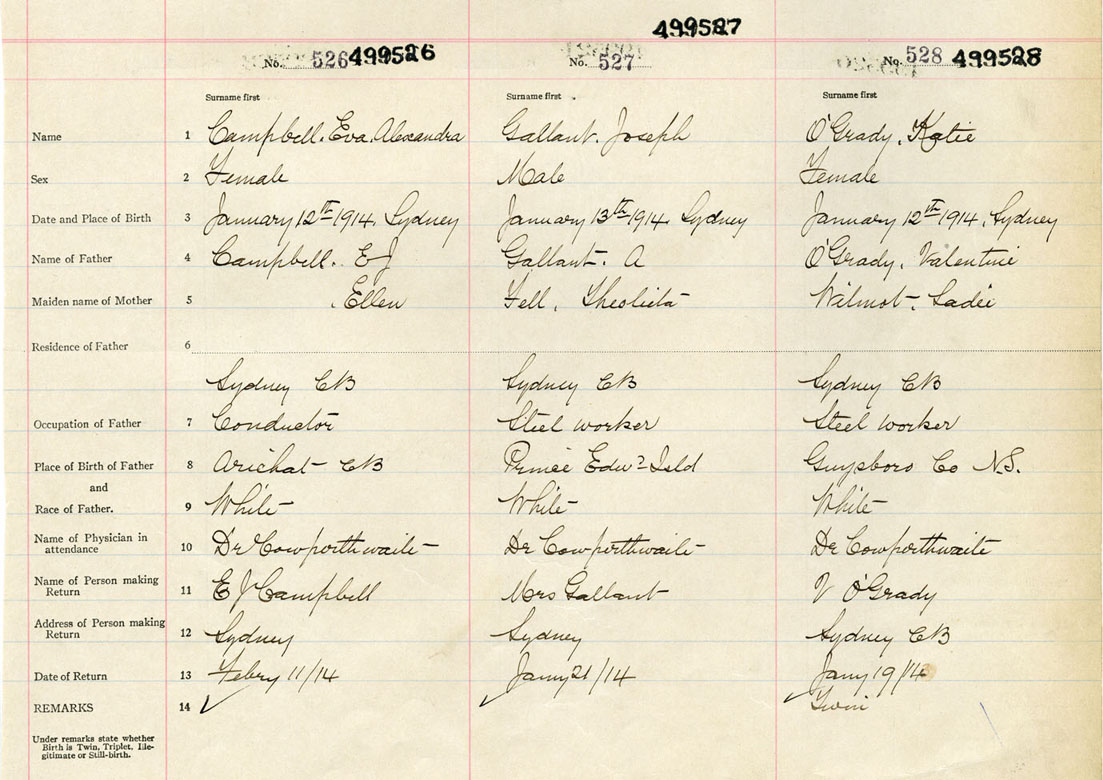 499527
No. 526 499526 No. 527 No. 528 499528
Surname first Surname first Surname first
Name 1 Campbell, Eva Alexandra Gallant, Joseph O'Grady, Katie
Sex 2 Female Male Female
Date and Place of Birth 3 January 12th 1914, Sydney January 13th 1914, Sydney January 12th 1914, Sydney
Name of Father 4 Campbell, E J Gallant, A O'Grady, Valentine
Maiden name of Mother 5 Ellen Fell, Wilmot, Sadie
Residence of Father 6
Sydney CB Sydney CB Sydney CB
Occupation of Father 7 Conductor Steel worker Steel worker
Place of Birth of Father 8 Arichat CB Prince Edwd Isld Guysboro Co N.S.
and
Race of Father. 9 White White White
Name of Physician in
attendance 10 Dr Cowperthwaite Dr Cowperthwaite Dr Cowperthwaite
Name of Person making
Return 11 E J Campbell Mrs Gallant V O'Grady
Address of Person making
Return 12 Sydney Sydney Sydney CB
Date of Return 13 Febry 11/14 Jany 21/14 Jany 19/14
REMARKS 14 Twin
Under remarks state whether
Birth is Twin, Triplet, Ille-
gitimate or Still-birth.